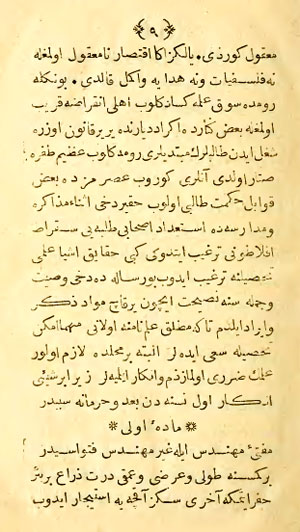 ﴿ ٩ ﴾
معقول كوردی . يالكز اكا اقتصار نامعقول اولمغله
نه فلسفيات ونه هدايه واكمل قالدی . بونكله
رومده سوق علمه كساد كلوب اهلی انقراضه قريب
اولمغله بعض كنارده اكراد ديارنده بر بر قانون اوزره
شغل ايدن طالبلرك مبتديلری رومه كلوب عظيم طفره
صتار اولدی آنلری كوروب عصرمزده بعض
قوابل حكمت طالبی اولوب حقير دخی اثناء مذاكره
ومدارسه ده استعداد اصحابی طلبه يی سقراط
افلاطونی ترغيب ايتدوكی كبی حقايق اشيا علمی
تحصيلنه ترغيب ايدوب بو رساله ده دخی وصيت
وجمله سنه نصيحت ايچون برقاچ مواد ذكر
وايراد ايلدم تاكه مطلق علم نامنه اولانی مهما امكن
تحصيله سعی ايده لر البته بر محلده لازم اولور
علمك ضرری اولمازذم وانكار ايليه لر زيرا بر شيئی
انكار اول نسنه دن بعد وحرمانه سببدر
* مادۀ اولی *
مفتئ مهندس ايله غير مهندس فتواسيدر
بر كمسنه طولی وعرضی وعمقی درت ذراع بر يئر
حفر ايتمكه آخری سكز آقچه يه استيجار ايدوب